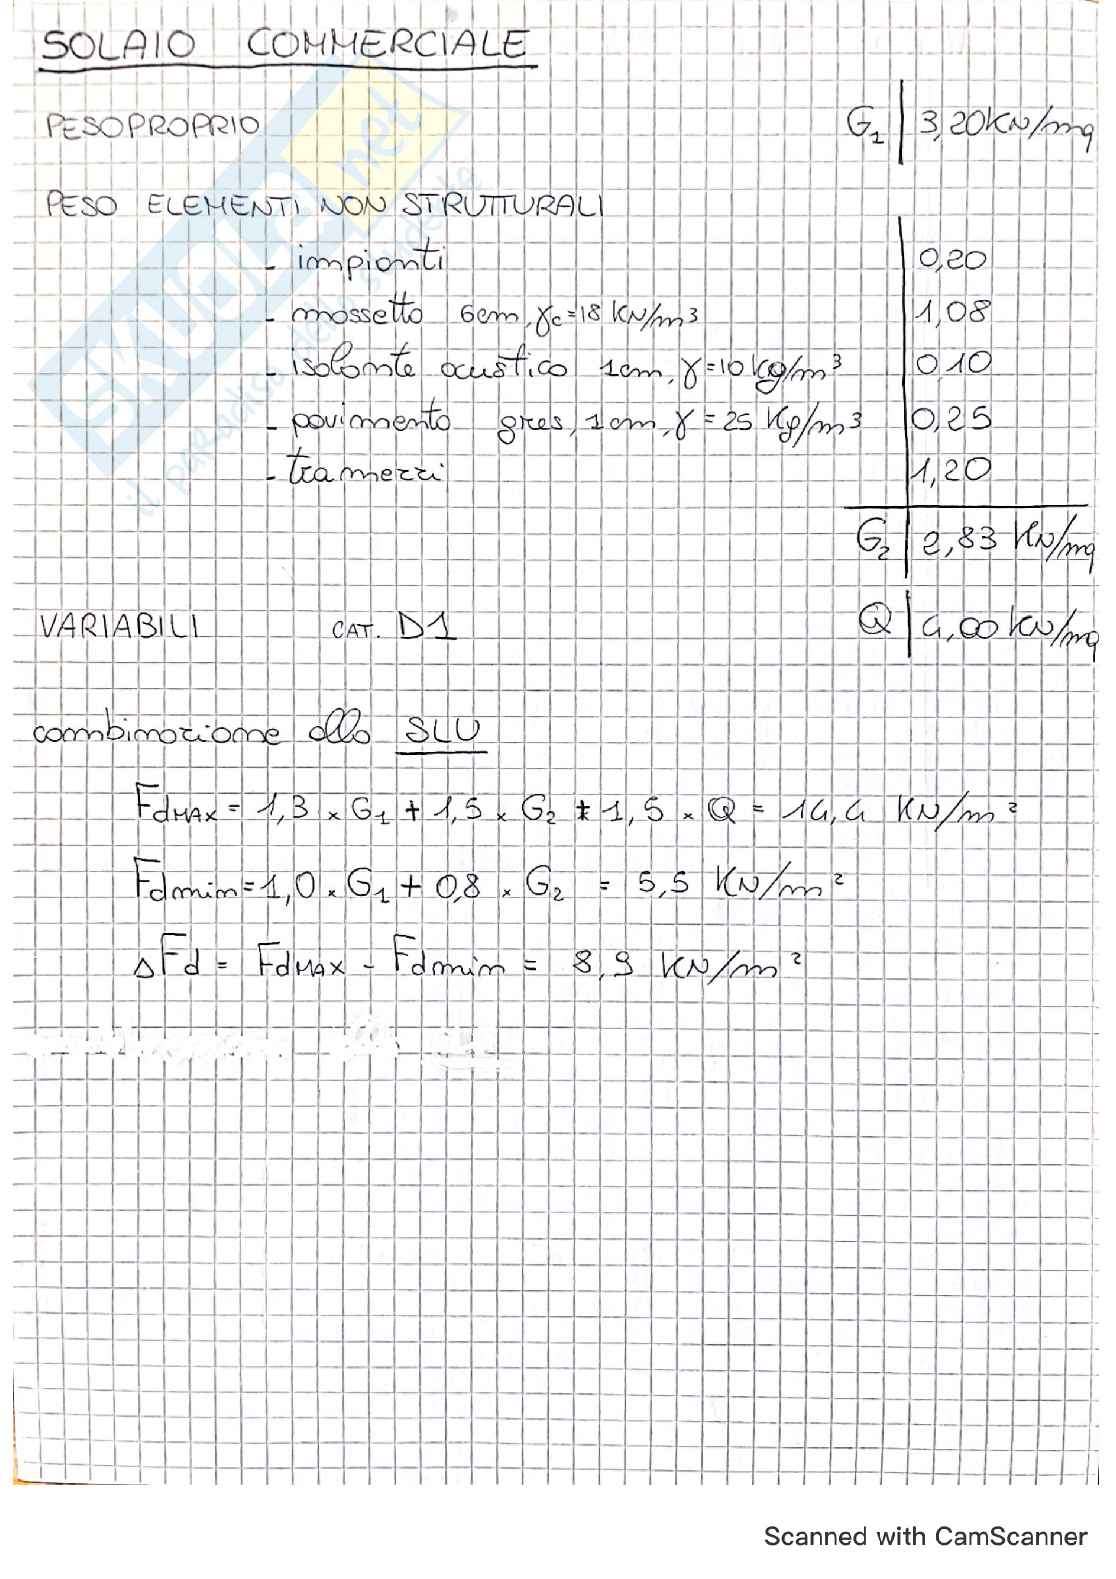 SOLAIO COMMERCIALE
PESO PROPRIO G1 3,20 KN/mq
PESO ELEMENTI NON STRUTTURALI
- impianti 0,20
- massetto 6cm, γc=18 KN/m3 1,08
- isolante acustico 1cm, γ=10 Kg/m3 0,10
- pavimento gres, 1cm, γ=25 Kg/m3 0,25
- tramezzi 1,20
G2 2,83 KN/mq
VARIABILI CAT. D1 Q 4,00 KN/mq
combinazione allo SLU
FdMAX = 1,3 × G1 + 1,5 × G2 + 1,5 × Q = 14,4 KN/m²
Fdmin = 1,0 × G1 + 0,8 × G2 = 5,5 KN/m²
ΔFd = FdMAX - Fdmin = 8,9 KN/m²
SKUOLA.net
il paradiso dello studente
Scanned with CamScanner